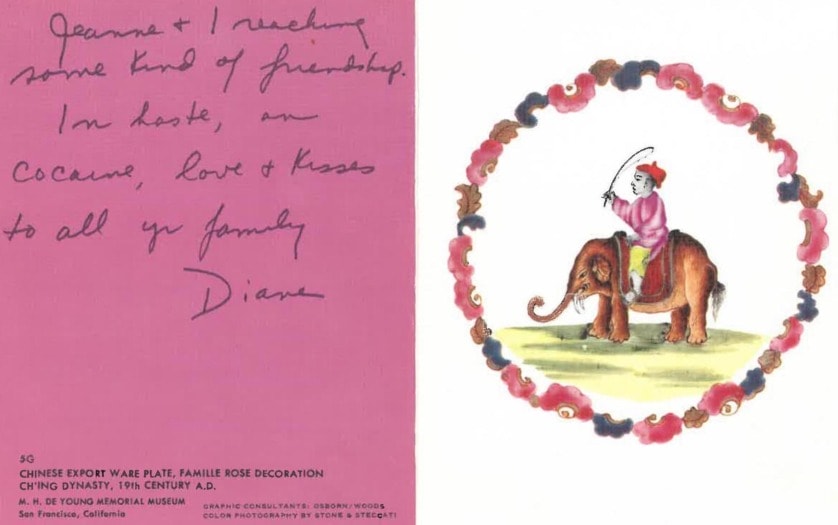 Jeanne + I reaching
some kind of friendship.
In haste, on
cocaine, love + kisses
to all yr family
Diane
5G
CHINESE EXPORT WARE PLATE, FAMILLE ROSE DECORATION
CH'ING DYNASTY, 19th CENTURY A.D.
M. H. DE YOUNG MEMORIAL MUSEUM
San Francisco, California
GRAPHIC CONSULTANTS: OSBORN/WOODS
COLOR PHOTOGRAPHY BY STONE & STECCATI